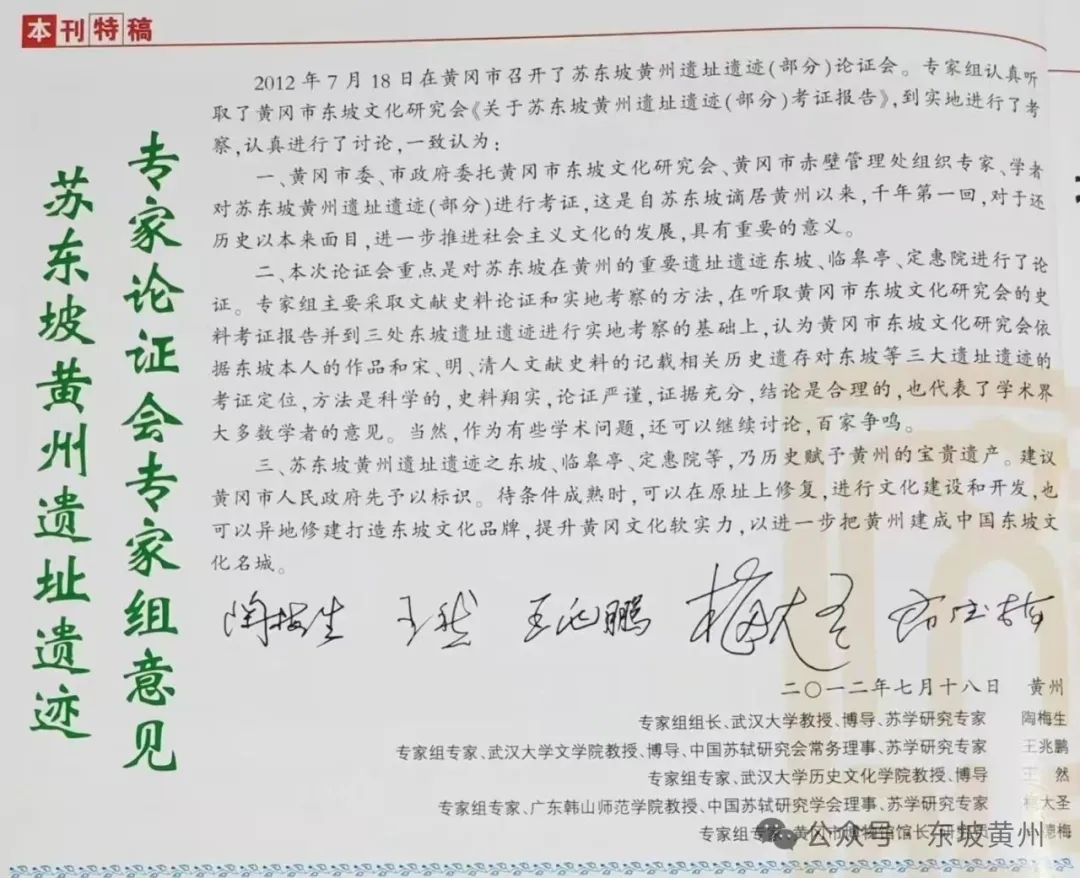 本刊特稿
苏东坡黄州遗址遗迹
专家论证会专家组意见
2012年7月18日在黄冈市召开了苏东坡黄州遗址遗迹(部分)论证会。专家组认真听
取了黄冈市东坡文化研究会《关于苏东坡黄州遗址遗迹(部分)考证报告》,到实地进行了考
察,认真进行了讨论,一致认为:
一、黄冈市委、市政府委托黄冈市东坡文化研究会、黄冈市赤壁管理处组织专家、学者
对苏东坡黄州遗址遗迹(部分)进行考证,这是自苏东坡谪居黄州以来,千年第一回,对于还
历史以本来面目,进一步推进社会主义文化的发展,具有重要的意义。
二、本次论证会重点是对苏东坡在黄州的重要遗址遗迹东坡、临皋亭、定惠院进行了论
证。专家组主要采取文献史料论证和实地考察的方法,在听取黄冈市东坡文化研究会的史
料考证报告并到三处东坡遗址遗迹进行实地考察的基础上,认为黄冈市东坡文化研究会依
据东坡本人的作品和宋、明、清人文献史料的记载相关历史遗存对东坡等三大遗址遗迹的
考证定位,方法是科学的,史料翔实,论证严谨,证据充分,结论是合理的,也代表了学术界
大多数学者的意见。当然,作为有些学术问题,还可以继续讨论,百家争鸣。
三、苏东坡黄州遗址遗迹之东坡、临皋亭、定惠院等,乃历史赋予黄州的宝贵遗产。建议
黄冈市人民政府先予以标识。待条件成熟时,可以在原址上修复,进行文化建设和开发,也
可以异地修建打造东坡文化品牌,提升黄冈文化软实力,以进一步把黄州建成中国东坡文
化名城。
陶梅生 王然 王兆鹏 杨大圣
二〇一二年七月十八日 黄州
专家组组长、武汉大学教授、博导、苏学研究专家 陶梅生
专家组专家、武汉大学文学院教授、博导、中国苏轼研究会常务理事、苏学研究专家 王兆鹏
专家组专家、武汉大学历史文化学院教授、博导 王然
专家组专家、广东韩山师范学院教授、中国苏轼研究学会理事、苏学研究专家 杨大圣
专家组专家、黄冈市博物馆馆长、研究员 德梅
公众号 东坡黄州